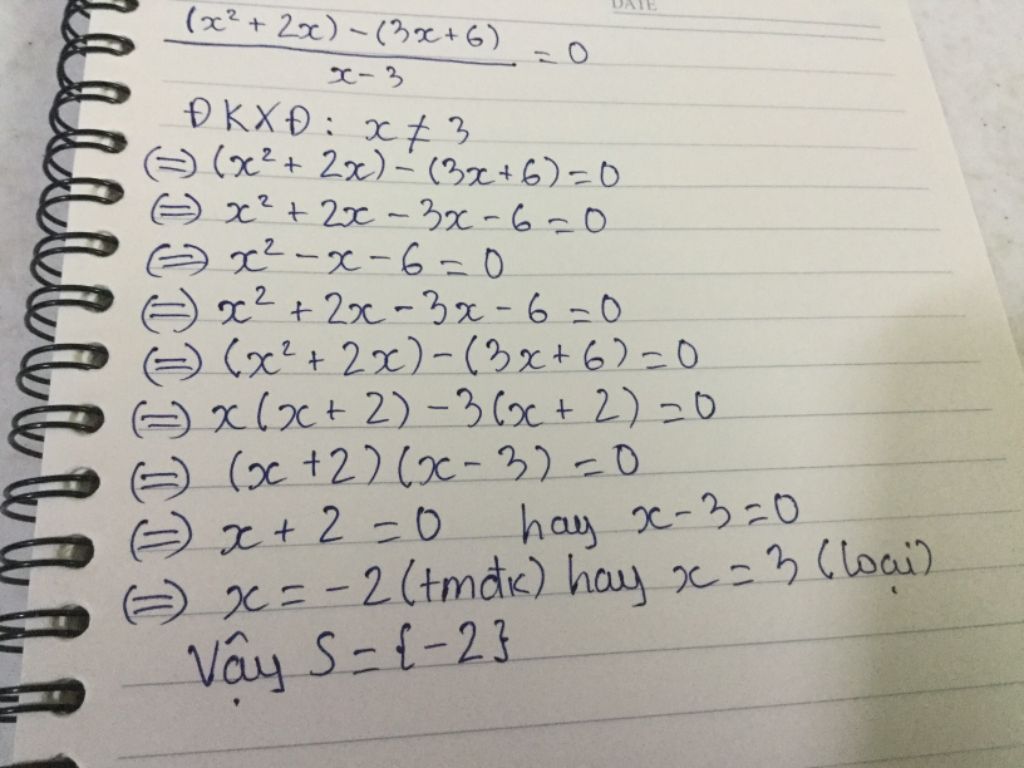 DATE
(x² + 2x) - (3x+6)
/ x - 3 = 0
ĐKXĐ: x ≠ 3
(=) (x² + 2x) - (3x+6) = 0
(=) x² + 2x - 3x - 6 = 0
(=) x² - x - 6 = 0
(=) x² + 2x - 3x - 6 = 0
(=) (x² + 2x) - (3x + 6) = 0
(=) x(x + 2) - 3(x + 2) = 0
(=) (x + 2)(x - 3) = 0
(=) x + 2 = 0 hay x - 3 = 0
(=) x = -2 (tmđk) hay x = 3 (loại)
Vậy S = {-2}